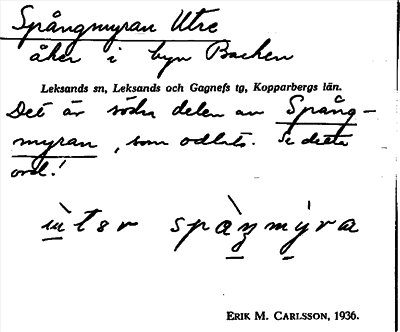 Spångmyran Utre
åker i byn Backen
Leksands sn, Leksands och Gagnefs tg, Kopparbergs län.
Det är södra delen av Spång-
myran, som odlats. Se detta
ord!
spàŋmýra
ERIK M. CARLSSON, 1936.